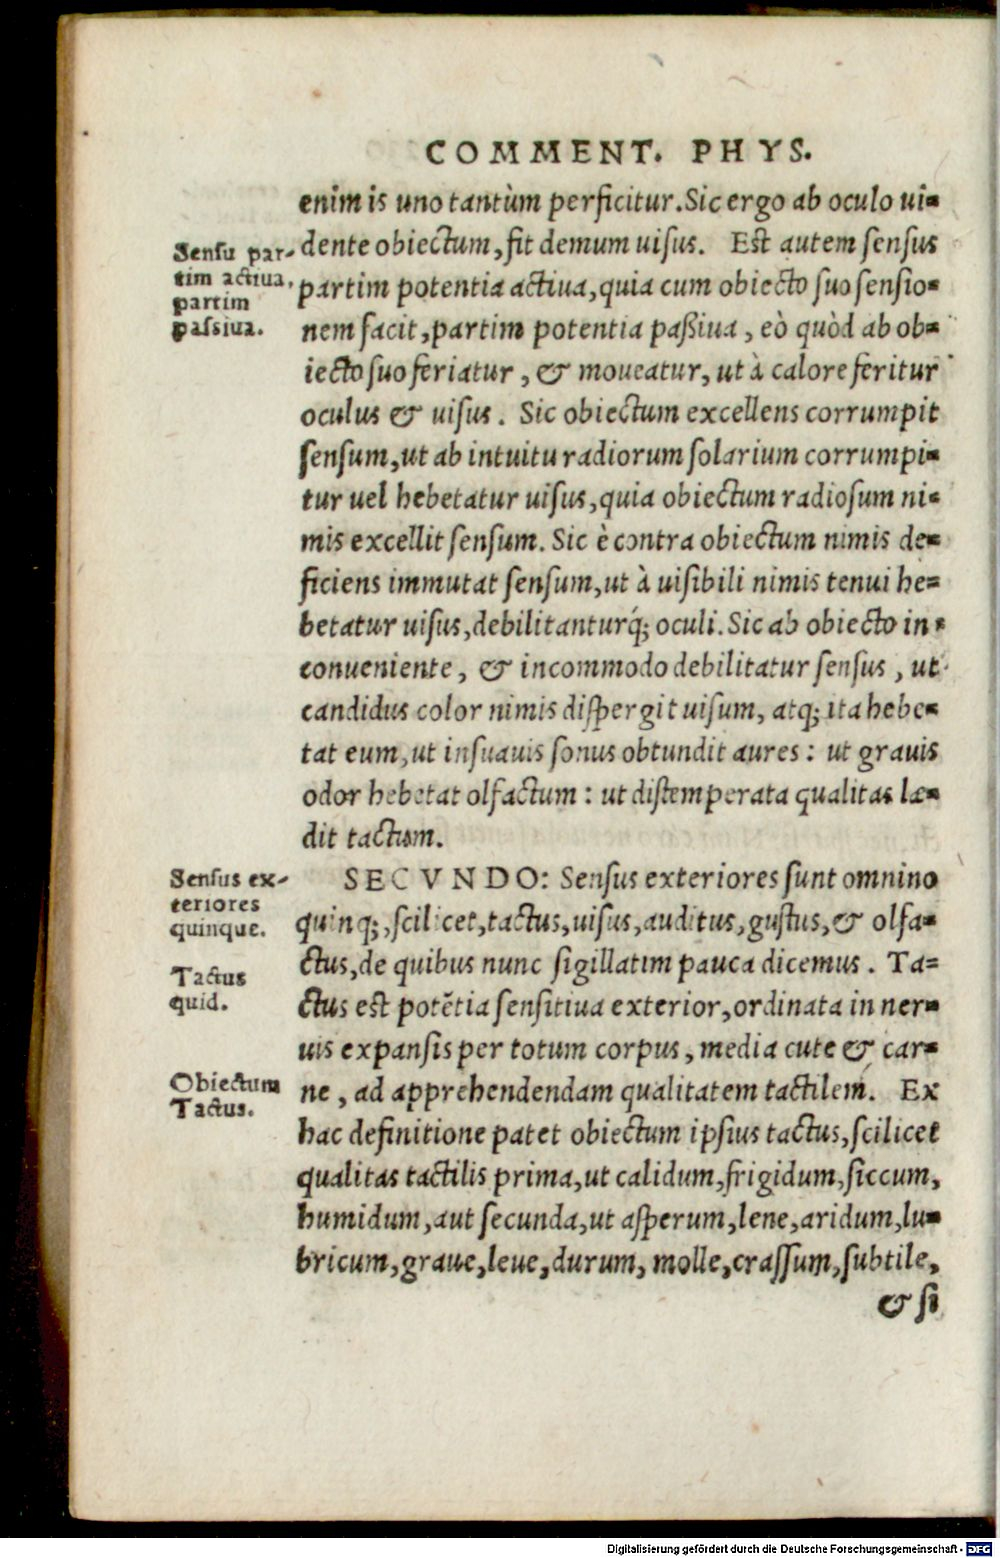 COMMENT. PHYS.
enim is uno tantùm perficitur. Sic ergo ab oculo ui-
dente obiectum, fit demum uisus. Est autem sensus
partim potentia actiua, quia cum obiecto suo sensio-
nem facit, partim potentia paßiua, eò quòd ab ob-
iecto suo feriatur, & moueatur, ut à calore feritur
oculus & uisus. Sic obiectum excellens corrumpit
sensum, ut ab intuitu radiorum solarium corrumpi-
tur uel hebetatur uisus, quia obiectum radiosum ni-
mis excellit sensum. Sic è contra obiectum nimis de-
ficiens immutat sensum, ut à uisibili nimis tenui he-
betatur uisus, debilitanturq́; oculi. Sic ab obiecto in-
conueniente, & incommodo debilitatur sensus, ut
candidus color nimis dispergit uisum, atq; ita hebe-
tat eum, ut insuauis sonus obtundit aures: ut grauis
odor hebetat olfactum: ut distemperata qualitas læ-
dit tactum.
SECVNDO: Sensus exteriores sunt omnino
quinq;, scilicet, tactus, uisus, auditus, gustus, & olfa-
ctus, de quibus nunc sigillatim pauca dicemus. Ta-
ctus est potẽtia sensitiua exterior, ordinata in ner-
uis expansis per totum corpus, media cute & car-
ne, ad apprehendendam qualitatem tactilem. Ex
hac definitione patet obiectum ipsius tactus, scilicet
qualitas tactilis prima, ut calidum, frigidum, siccum,
humidum, aut secunda, ut asperum, lene, aridum, lu-
bricum, graue, leue, durum, molle, crassum, subtile,
& si
Sensu par-
tim actiua,
partim
passiua.
Sensus ex-
teriores
quinque.
Tactus
quid.
Obiectum
Tactus.
Digitalisierung gefördert durch die Deutsche Forschungsgemeinschaft - DFG